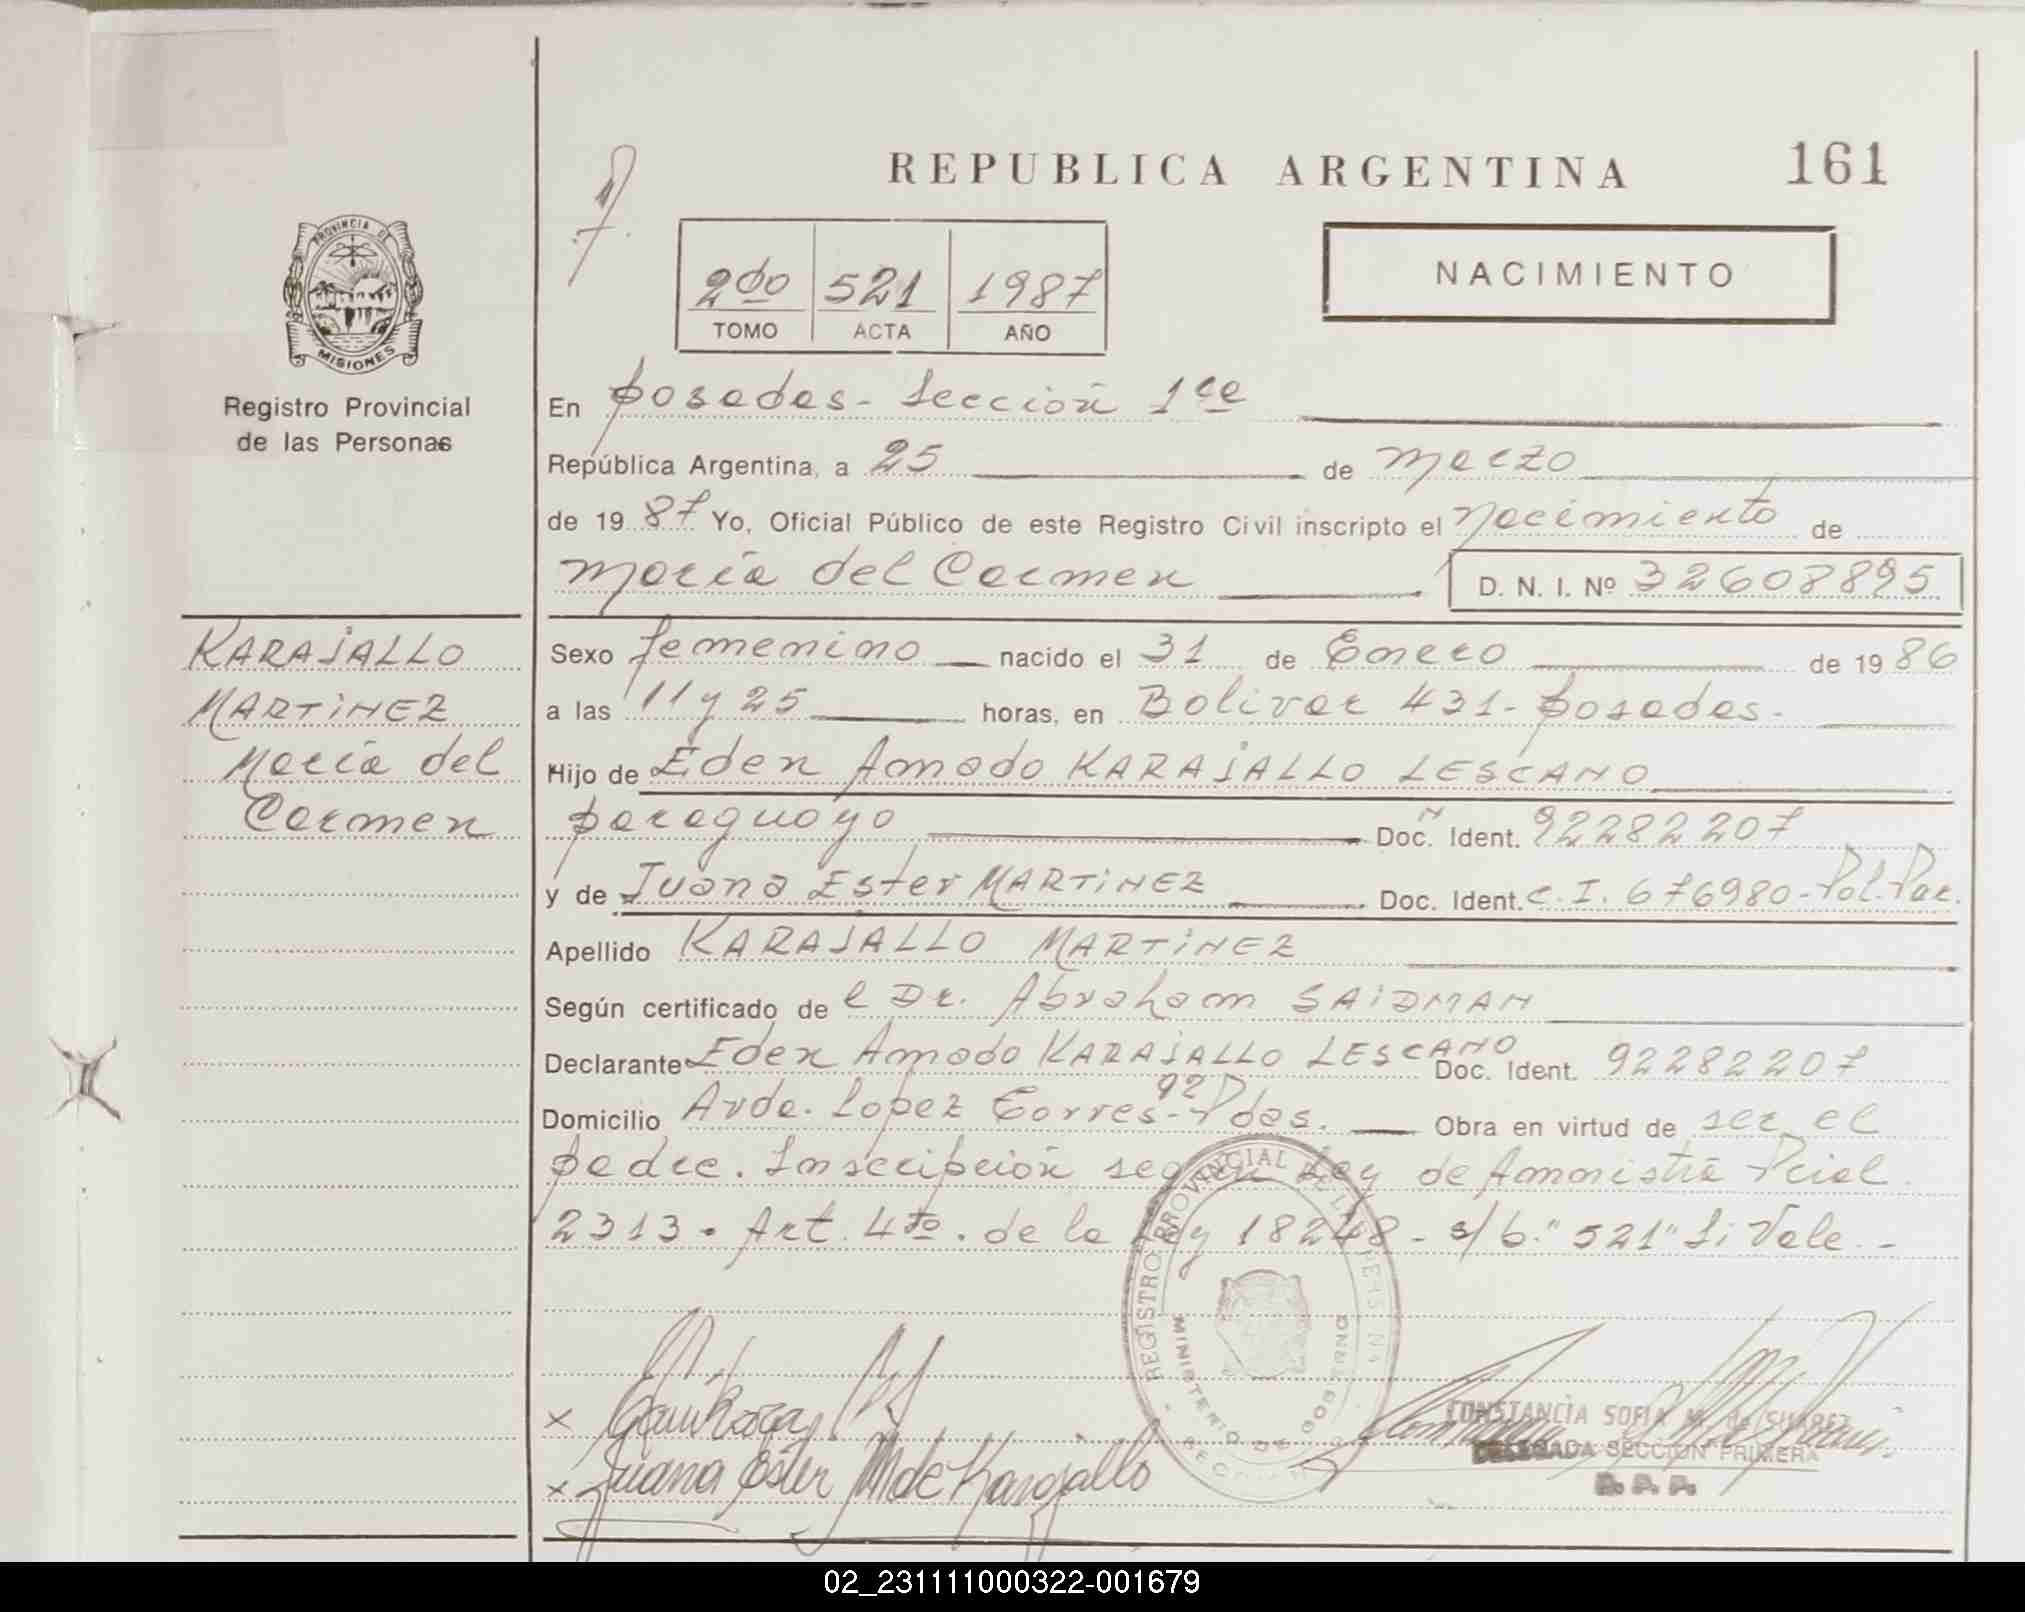 REPUBLICA ARGENTINA 161
2do 521 1987
TOMO ACTA AÑO
NACIMIENTO
PROVINCIA DE
MISIONES
Registro Provincial
de las Personas
KARAJALLO
MARTINEZ
María del
Carmen
En Posadas - Sección 1ra
República Argentina, a 25 de Marzo
de 1987 Yo, Oficial Público de este Registro Civil inscripto el Nacimiento de
María del Carmen D. N. I. Nº 32608895
Sexo femenino nacido el 31 de Enero de 1986
a las 11 y 25 horas, en Bolivar 431 - Posadas -
Hijo de Eden Amado KARAJALLO LESCANO
paraguayo Doc. Ident. 92282207
y de Juana Ester MARTINEZ Doc. Ident. C. I. 676980 - Pol. Par.
Apellido KARAJALLO MARTINEZ
Según certificado de l Dr. Abraham SAIDMAN
Declarante Eden Amado KARAJALLO LESCANO Doc. Ident. 92282207
Domicilio Avda. Lopez Torres - 92 Pdas. Obra en virtud de ser el
padre. Inscripción según Ley de Amnistía Pcial
2313. Art. 4to. de la Ley 18248 - s/b. "521" Si Vale. -
REGISTRO PROVINCIAL DE LAS PERSONAS
MINISTERIO DE GOBIERNO
x
x Juana Ester M de Karajallo
CONSTANCIA SOFIA M. de SUAREZ
DELEGADA SECCION PRIMERA
02_231111000322-001679